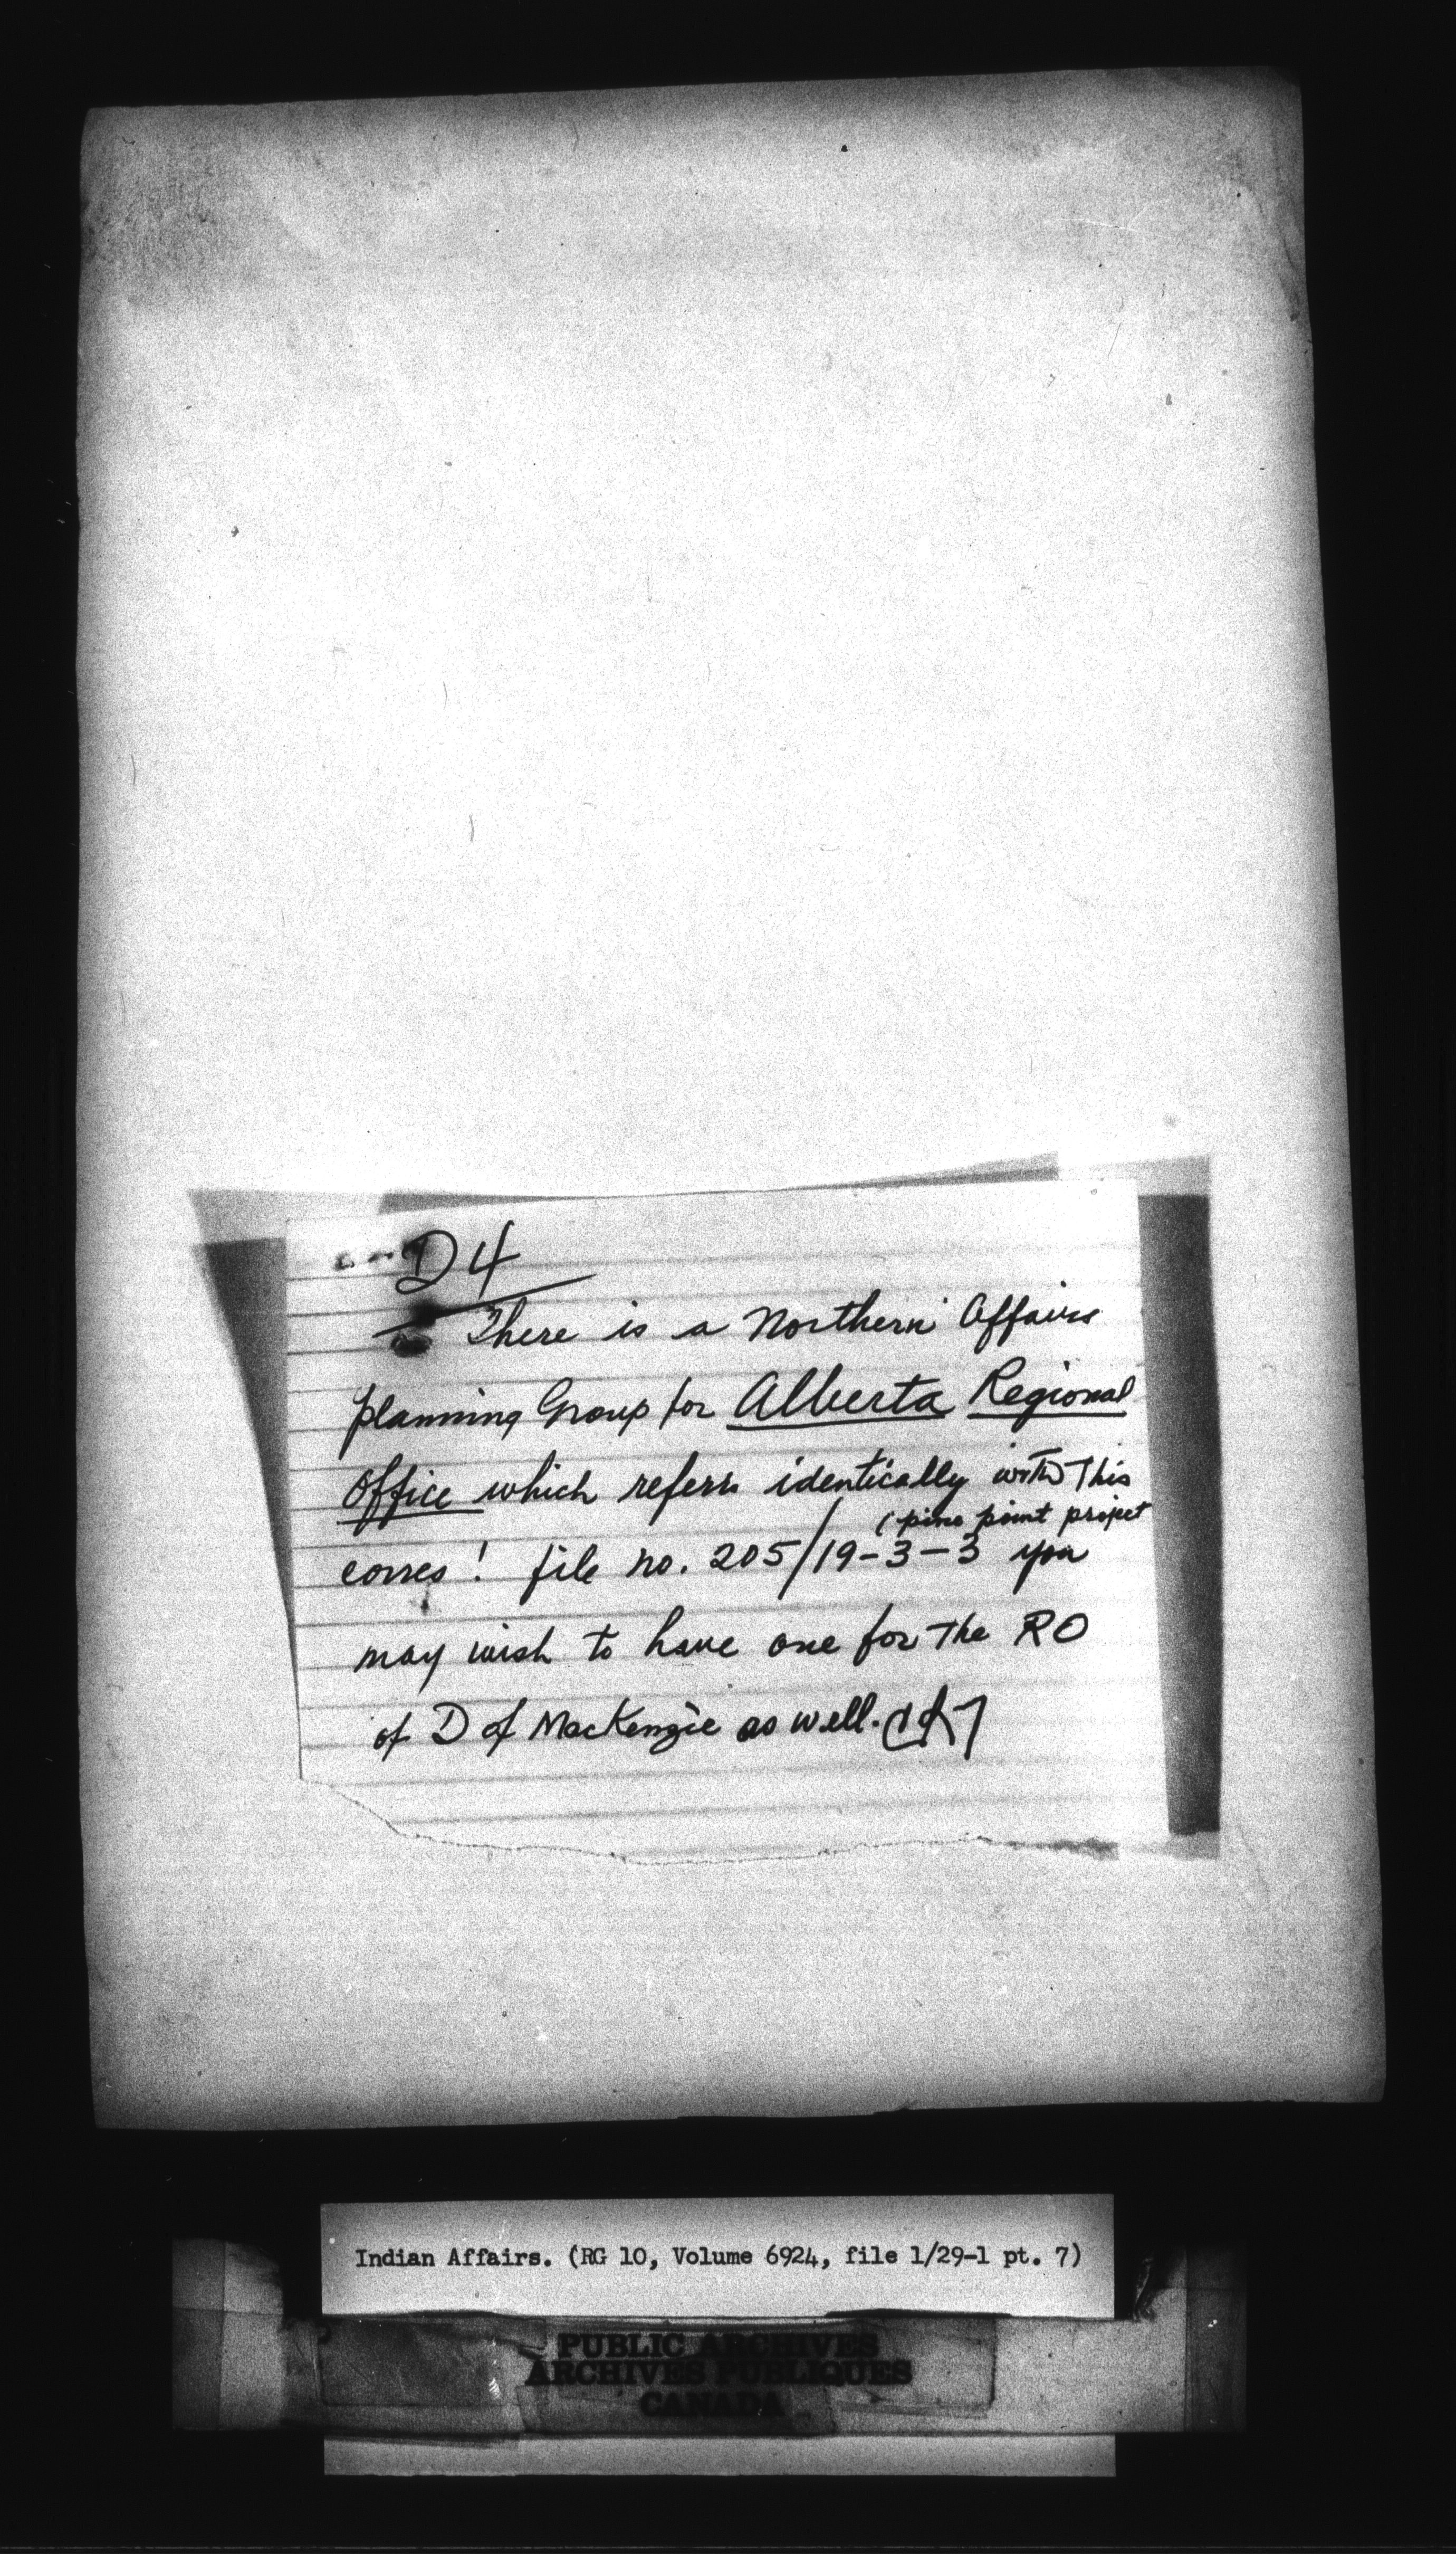 D4
There is a Northern Affairs
planning Group for Alberta Regional
Office which refers identically with this
(pine point project
corres! file no. 205/19-3-3 you
may wish to have one for the RO
of D of MacKenzie as well.
Indian Affairs. (RG 10, Volume 6924, file 1/29-1 pt. 7)
PUBLIC ARCHIVES
ARCHIVES PUBLIQUES
CANADA